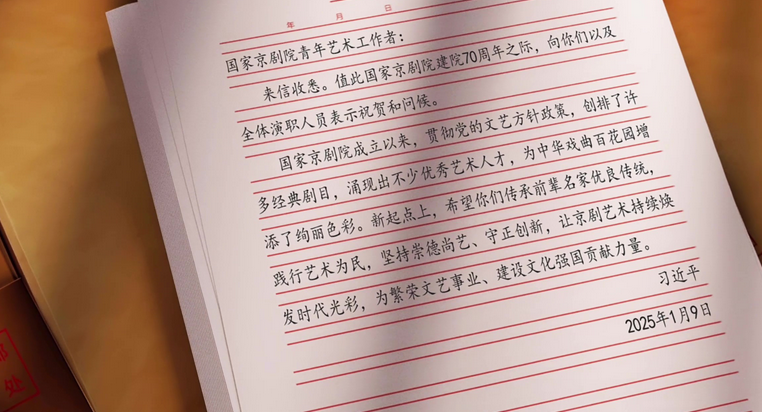 年 月 日
国家京剧院青年艺术工作者：
来信收悉。值此国家京剧院建院70周年之际，向你们以及
全体演职人员表示祝贺和问候。
国家京剧院成立以来，贯彻党的文艺方针政策，创排了许
多经典剧目，涌现出不少优秀艺术人才，为中华戏曲百花园增
添了绚丽色彩。新起点上，希望你们传承前辈名家优良传统，
践行艺术为民，坚持崇德尚艺、守正创新，让京剧艺术持续焕
发时代光彩，为繁荣文艺事业、建设文化强国贡献力量。
习近平
2025年1月9日
处